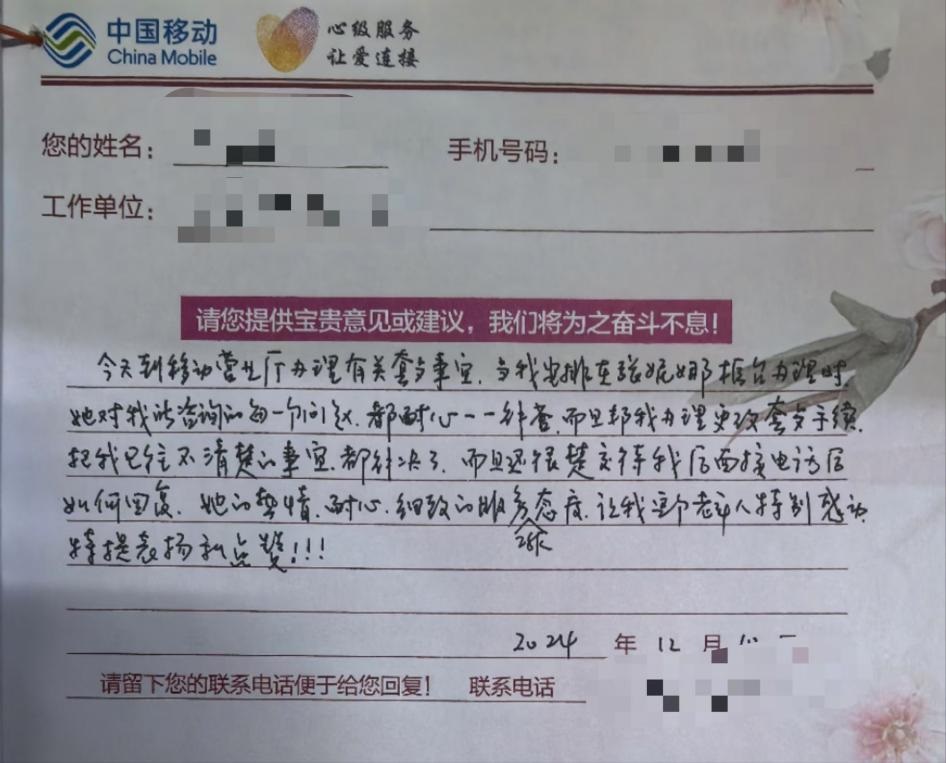 中国移动
China Mobile
心级服务
让爱连接
您的姓名：
手机号码：
工作单位：
请您提供宝贵意见或建议，我们将为之奋斗不息！
今天到移动营业厅办理有关套餐事宜，当我安排在张妮娜柜台办理时，
她对我所咨询的每一个问题，都耐心一一解答，而且帮我办理更改套餐手续，
把我已往不清楚的事宜，都解决了，而且还很楚交待我后面接电话后
如何回复。她的热情、耐心、细致的服务态度，让我这个老年人特别感动
特提表扬和点赞！！！
2024 年 12 月
请留下您的联系电话便于给您回复！ 联系电话